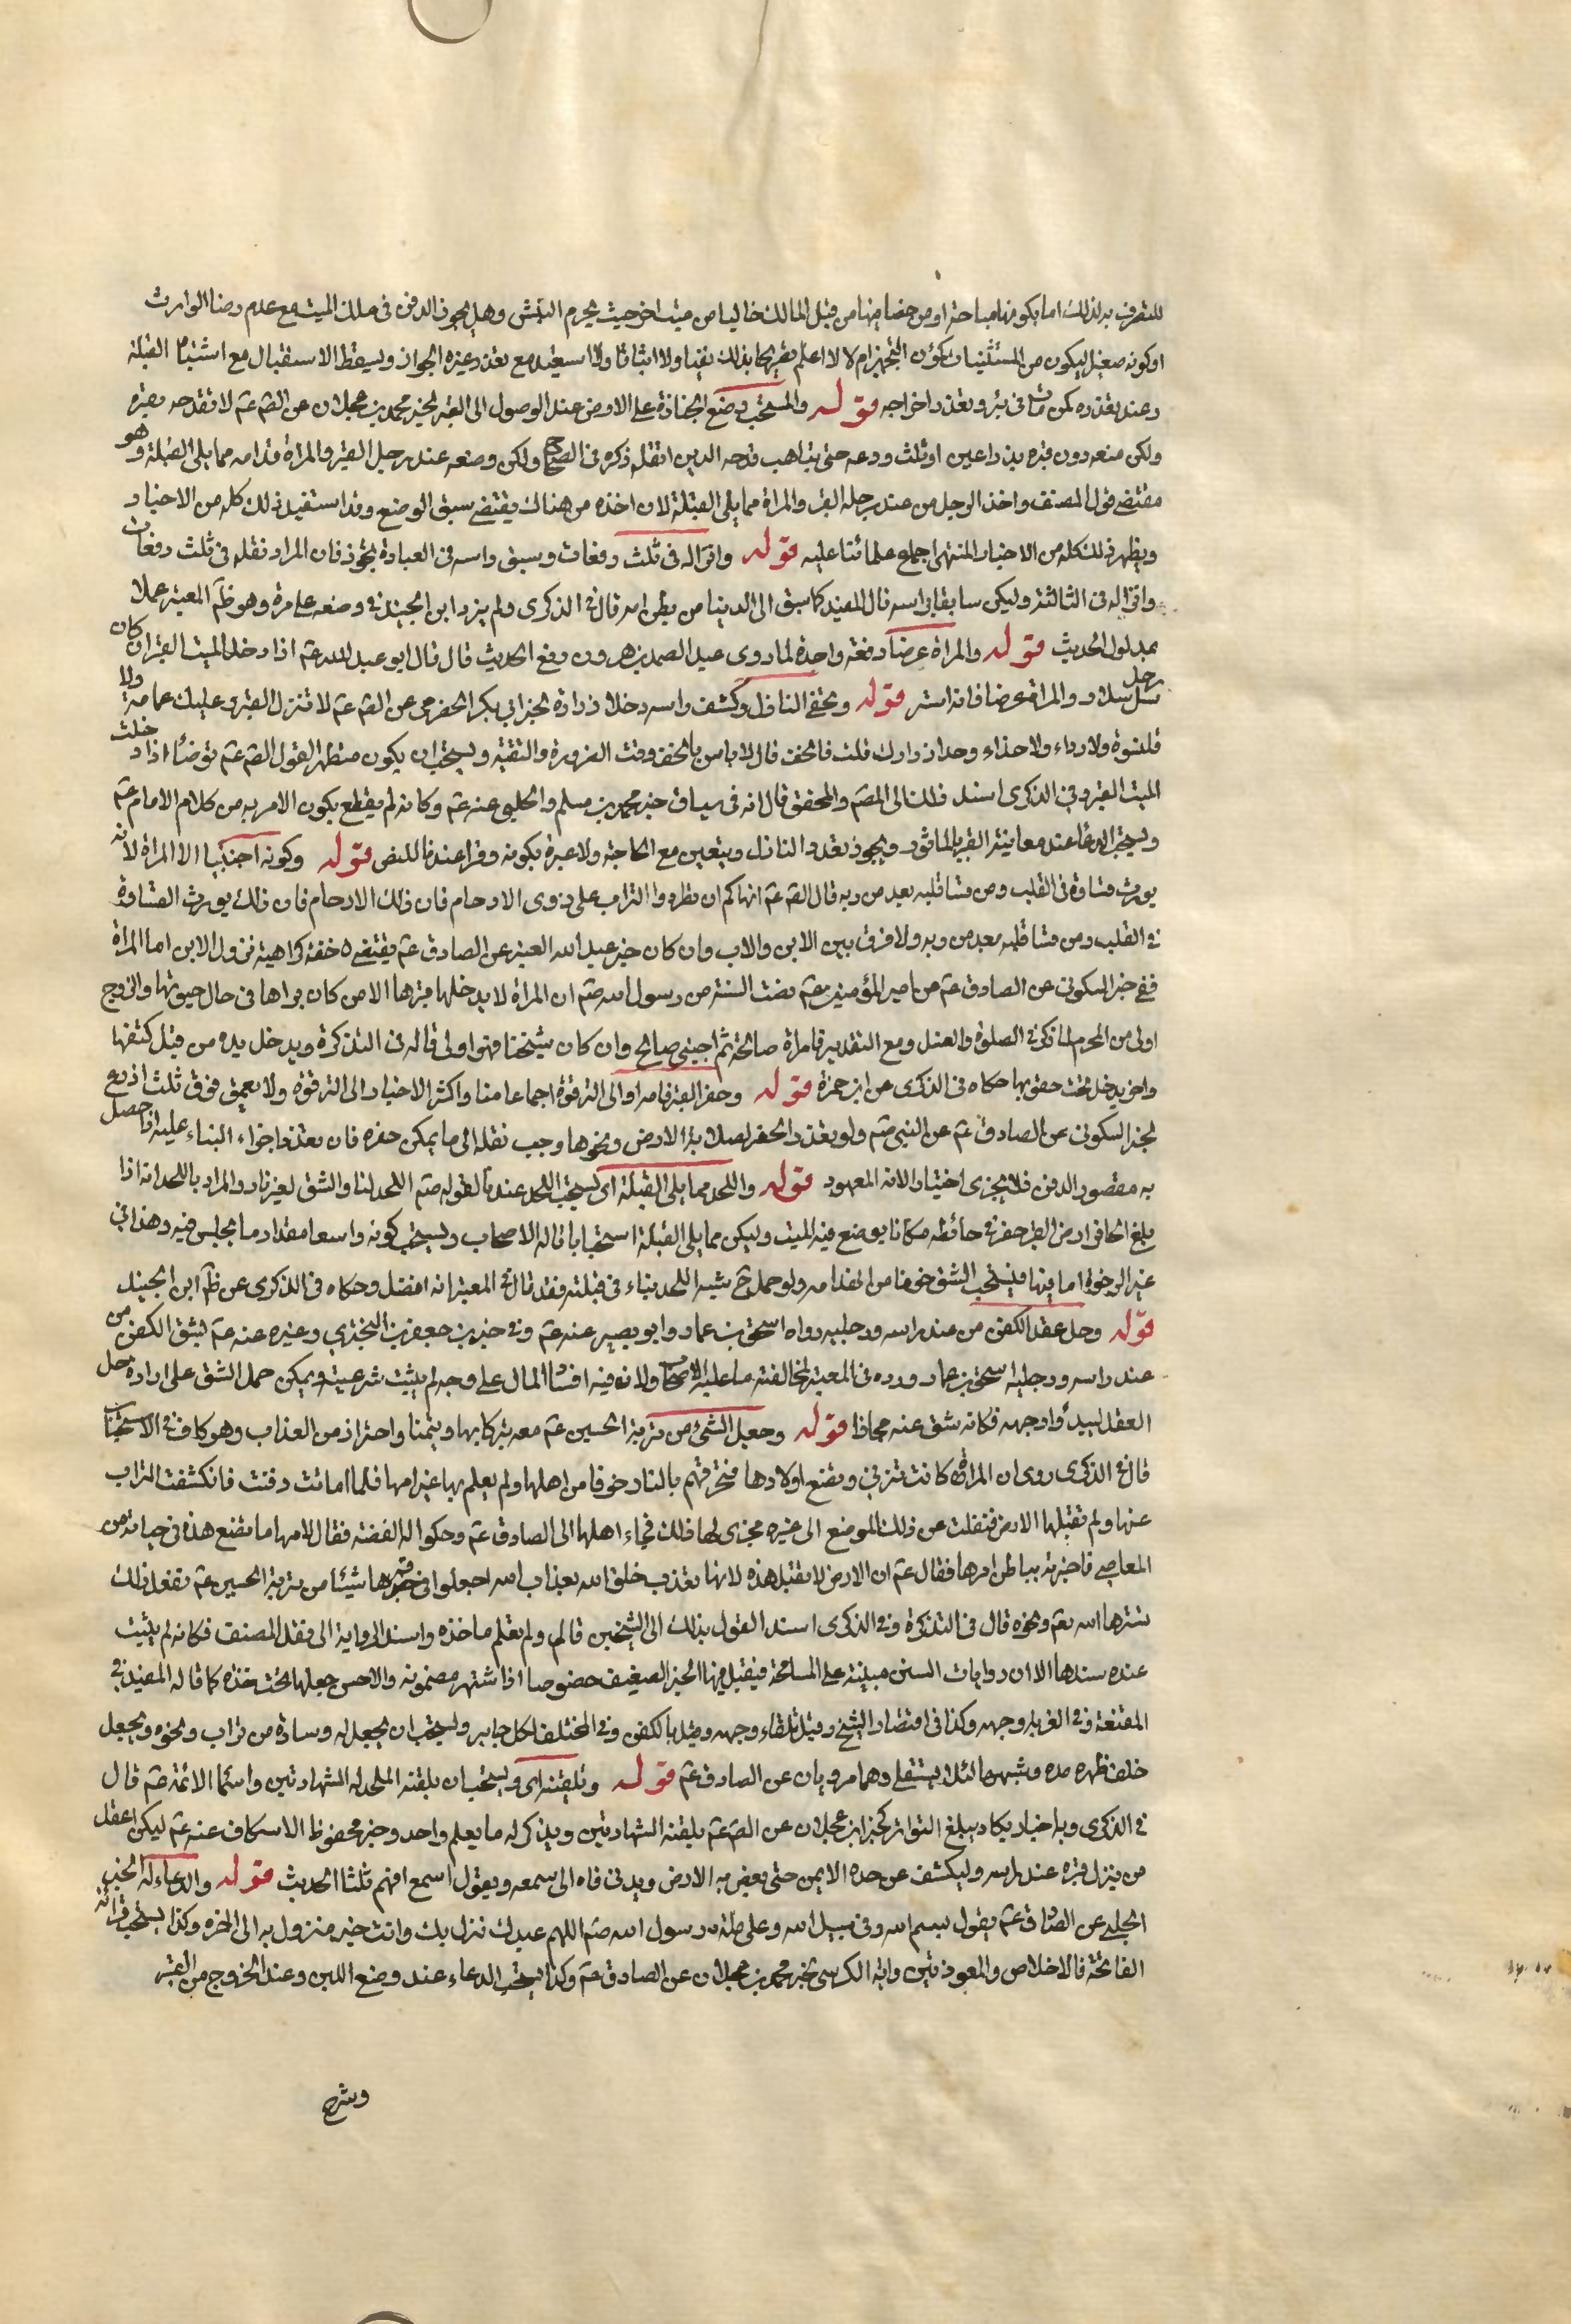 للتصرف به لذلك اما بكونها مباحة او من خصايصها من قبل المالك خاليا من ميت اخر حيث يحرم النبش وهل يجوز الدفن في ملك الميت مع عدم رضا الوارث
او كونه صغيرا ليكون من المستثنيات كمؤن التجهيز ام لا لا اعلم تصريحا بذلك نفيا ولا اثباتا ولا استبعد مع تعذر غيره الجواز ويسقط الاستقبال مع اشتباه القبلة
وعند تعذره كمن مات في بئر وتعذر اخراجه قوله والمستحب وضع الجنازة على الارض عند الوصول الى القبر لخبر محمد بن عجلان عن الصم عم لا تفدحه بقبره
ولكن ضعه دون قبره بذراعين او ثلث ودعه حتى يتاهب فدحه الدين اثقله ذكره في الصحاح ولكن وضعه عند رجل القبر والمراة قدامه مما يلي القبلة وهو
مقتضى قول المصنف واخذ الرجل من عند رجله القبر والمراة مما يلي القبلة لان اخذه من هناك يقتضي سبق الوضع وقد استفيد ذلك كله من الاخبار
ويظهر ذلك كله من الاخبار المنتهى اجماع علمائنا عليه قوله وانزاله في ثلث دفعات وسبق راسه في العبارة تجوز فان المراد نقله في ثلث دفعات
وانزاله في الثالثة وليكن سابقا براسه قال المفيد كما سبق الى الدنيا من بطن امه قال في الذكرى ولم يزد ابن الجنيد في وضعه على مرة وهو ظ المعتبر عملا
بمدلول الحديث قوله والمراة عرضا دفعة واحدة لما روى عبد الصمد بن هرون رفع الحديث قال قال ابو عبد الله عم اذا دخل الميت القبر ان كان
رجلا سل سلا والمراة عرضا فانه استر قوله وتحفي النازل وكشف راسه وحل ازراره لخبر ابي بكر الحضرمي عن الصم عم لا تنزل القبر وعليك عمامة ولا
قلنسوة ولا رداء ولا حذاء وحل ازرارك قلت فالخف قال لا باس بالخف وقت الضرورة والتقية ويستحب ان يكون متطهرا لقول الصم عم توضا اذا دخلت
الميت القبر وفي الذكرى اسند ذلك الى المصم والمحقق قال انه في سياق خبر محمد بن مسلم والحلبي عنه عم وكانه لم يقطع بكون الامر به من كلام الامام عم
ويستحب الدعا عند معاينة القبر بالماثور ويجوز تعدد النازل ويتعين مع الحاجة ولا عبرة بكونه وترا عندنا للنص قوله وكونه اجنبيا الا المراة لانه
يورث قساوة في القلب ومن قسا قلبه بعد من ربه قال الصم عم انهاكم ان تطرحوا التراب على ذوي الارحام فان ذلك الارحام فان ذلك يورث القساوة
في القلب ومن قسا قلبه بعد من ربه ولا فرق بين الابن والاب وان كان خبر عبد الله العنبري عن الصادق عم يقتضي خفة كراهية نزول الابن اما المراة
ففي خبر السكوني عن الصادق عم عن امير المؤمنين عم مضت السنة من رسول الله صم ان المراة لا يدخلها قبرها الا من كان يراها في حال حيوتها والزوج
اولى من المحرم لما ذكر في الصلوة والغسل ومع التقدير فامراة صالحة ثم اجنبي صالح وان كان شيخا فهو اولى قاله في التذكرة ويدخل يده من قبل كتفها
واخر يدخل تحت حقويها حكاه في الذكرى عن ابن حمزة قوله وحفر القبر قامة او الى الترقوة اجماعا منا واكثر الاخبار الى الترقوة ولا يعمق فوق ثلث اذرع
لخبر السكوني عن الصادق عم عن النبي صم ولو تعذر الحفر لصلابة الارض ونحوها وجب نقله الى ما يمكن حفره فان تعذر اجزاء البناء عليه اذا حصل
به مقصود الدفن فلا يجزى اختيارا لانه المعهود قوله واللحد مما يلي القبلة اي يستحب اللحد عندنا لقوله صم اللحد لنا والشق لغيرنا والمراد باللحد انه اذا
بلغ الحافر ارض القبر حفر في حائطه مكانا يوضع فيه الميت وليكن مما يلي القبلة استحبابا قاله الاصحاب ويستحب كونه واسعا مقدار ما يجلس فيه وهذا في
غير الرخوة اما فيها فيستحب الشق خوفا من انهدامه ولو حمل ح شبه اللحد ببناء في قبلته فقد قال في المعتبر انه افضل وحكاه في الذكرى عن ظ ابن الجنيد
قوله وحل عقد الكفن من عند راسه ورجليه رواه اسحق بن عمار وابو بصير عنه عم وفي خبر بن جعفر بن البختري وغيره عنه عم يشق الكفن من
عند راسه ورجليه اسحق بن عمار ورده في المعتبر لمخالفته ما عليه الاصحاب ولانه فيه افساد المال على وجه لم يثبت شرعيته ويمكن حمل الشق على ارادة حل
العقد ليبدؤ وجهه فكانه شق عنه مجازا قوله وجعل الشيء من تربة الحسين عم معه تبركا بها وتيمنا واحترازا من العذاب وهو كاف في الاستحباب
قال في الذكرى روى ان امراة كانت تزني وتضع اولادها فتحرقهم بالنار خوفا من اهلها ولم يعلم بها غير امها فلما ماتت دفنت فانكشفت التراب
عنها ولم تقبلها الارض فنقلت عن ذلك الموضع الى غيره فجرى لها ذلك فجاء اهلها الى الصادق عم وحكوا له القصة فقال لامها ما تصنع هذه في حيوتها من
المعاصي فاخبرته بباطن امرها فقال عم ان الارض لا تقبل هذه لانها تعذب خلق الله بعذاب الله اجعلوا في قبرها شيئا من تربة الحسين عم ففعل ذلك
سترها الله تعم ونحوه قال في التذكرة وفي الذكرى اسند القول بذلك الى الشيخين قال ولم نعلم ماخذه واسند الرواية الى نقل المصنف فكانه لم يثبت
عنده سندها الا ان روايات السنن مبينة على المسامحة فيقبل فيها الخبر الضعيف خصوصا اذا اشتهر مضمونه والاحسن جعلها تحت خده كما قاله المفيد في
المقنعة وفي الغرية وجهه وكذا في اقتصاد الشيخ وقيل تلقاء وجهه وقيل بالكفن وفي المختلف الكل جايز ويستحب ان يجعل له وسادة من تراب ونحوه ويجعل
خلف ظهره مدره وشبهها لئلا يستلقي وهما مرويان عن الصادق عم قوله وتلقينه اي ويستحب ان يلقنه الملحد له الشهادتين واسما الائمة عم قال
في الذكرى وبه اخبار يكاد يبلغ التواتر كخبر ابن عجلان عن الصم عم يلقنه الشهادتين ويذكر له ما يعلم واحد وخبر محفوظ الاسكاف عنه عم ليكن اعقل
من ينزل قبره عند راسه وليكشف عن خده الايمن حتى يفضى به الارض ويدني فاه الى سمعه ويقول اسمع افهم ثلثا الحديث قوله والدعاء له لخبر
الحلبي عن الصادق عم يقول بسم الله وفي سبيل الله وعلى ملة رسول الله صم اللهم عبدك نزل بك وانت خير منزول به الى اخره وكذا يستحب قرائة
الفاتحة فالاخلاص والمعوذتين واية الكرسي لخبر محمد بن عجلان عن الصادق عم وكذا يستحب الدعاء عند وضع اللبن وعند الخروج من القبر
وشرح